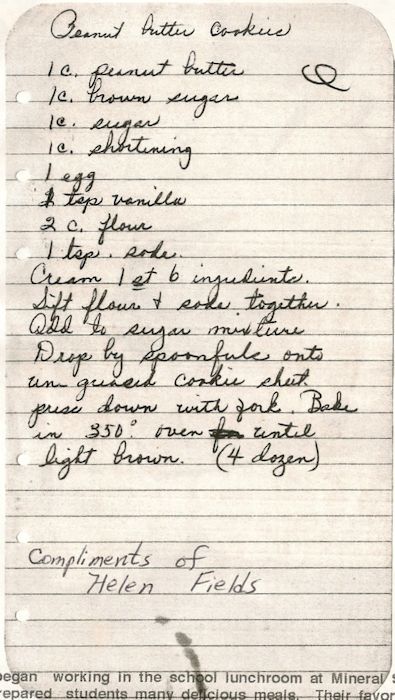 Peanut butter Cookies
1 c. peanut butter
1c. brown sugar
1c. sugar
1c. shortining
1 egg
1 tsp vanilla
2 c. flour
1 tsp. soda.
Cream 1st 6 ingredients.
Sift flour & soda together.
Add to sugar mixture
Drop by spoonfuls onto
un greased cookie sheet.
press down with fork. Bake
in 350° oven until
light brown. (4 dozen)
Compliments of
Helen Fields
began working in the school lunchroom at Mineral S
repared students many delicious meals. Their favor